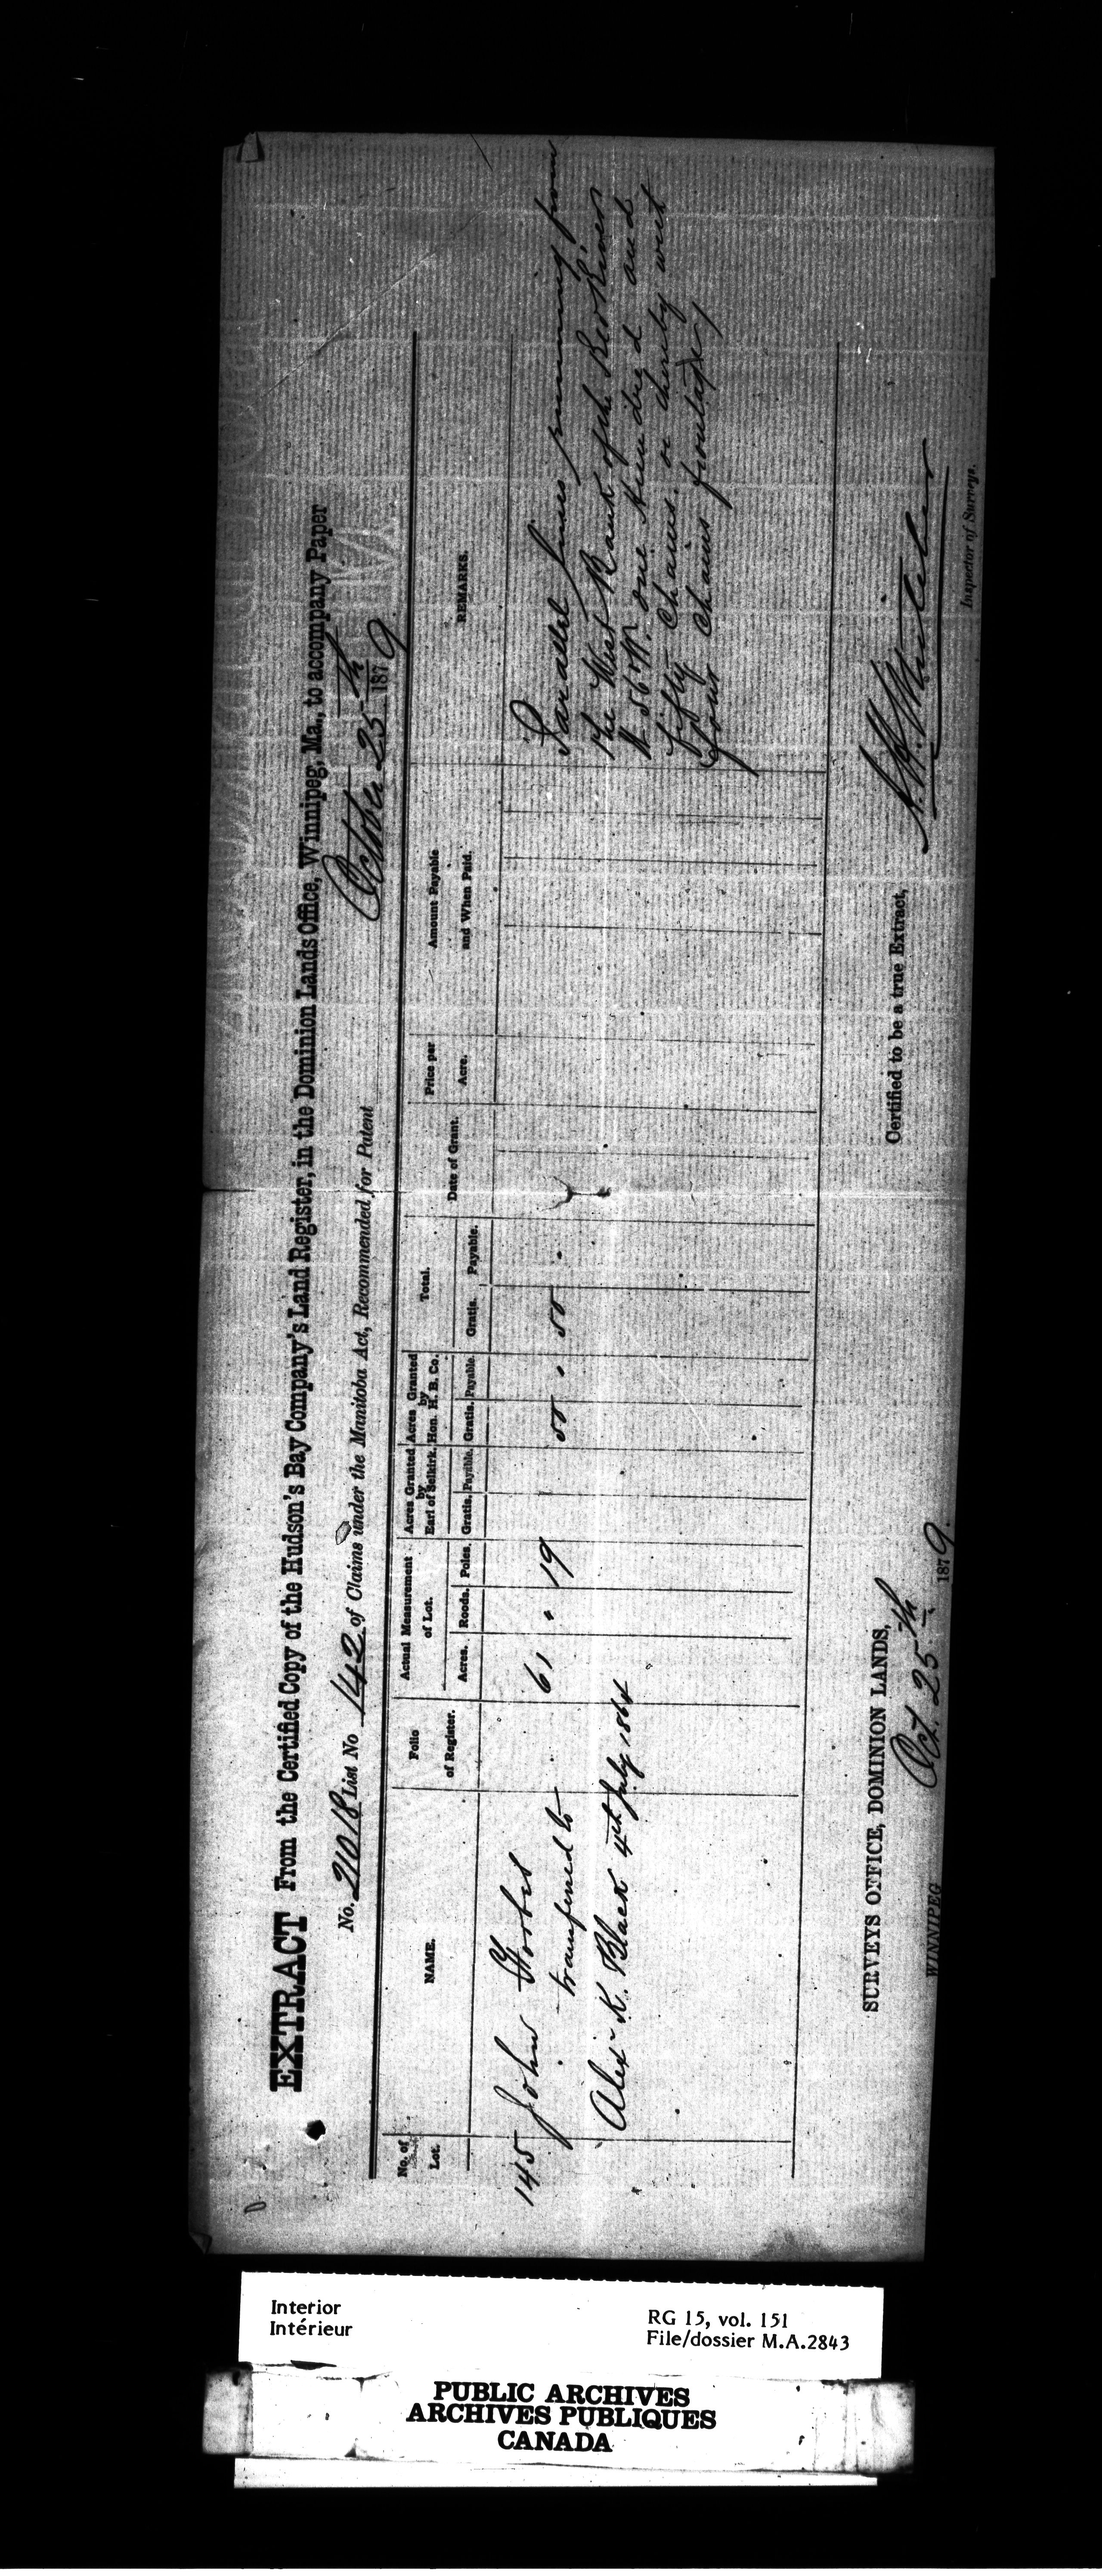 EXTRACT From the Certified Copy of the Hudson's Bay Company's Land Register, in the Dominion Lands Office, Winnipeg, Ma., to accompany Paper
No. 21018 List No 142 of Claims under the Manitoba Act, Recommended for Patent October 25th 1879.
No. of Lot. NAME. Folio of Register. Actual Measurement of Lot. Acres Granted by Earl of Selkirk. Acres Granted by Hon. H. B. Co. Total. Date of Grant. Price per Acre. Amount Payable and When Paid. REMARKS.
Acres. Roods. Poles. Gratis. Payable. Gratis. Payable. Gratis. Payable.
145 John Forbes 61 " 19 50 " 50 "
transferred to
Alexr K. Black 4th July 1864
Parallel lines running from
the West Bank of the Red River
N. 56° W. one hundred and
fifty chains. or thereby with
four chains frontage
Certified to be a true Extract,
Inspector of Surveys.
SURVEYS OFFICE, DOMINION LANDS,
WINNIPEG Oct. 25th 1879.
Interior
Intérieur
RG 15, vol. 151
File/dossier M.A.2843
PUBLIC ARCHIVES
ARCHIVES PUBLIQUES
CANADA